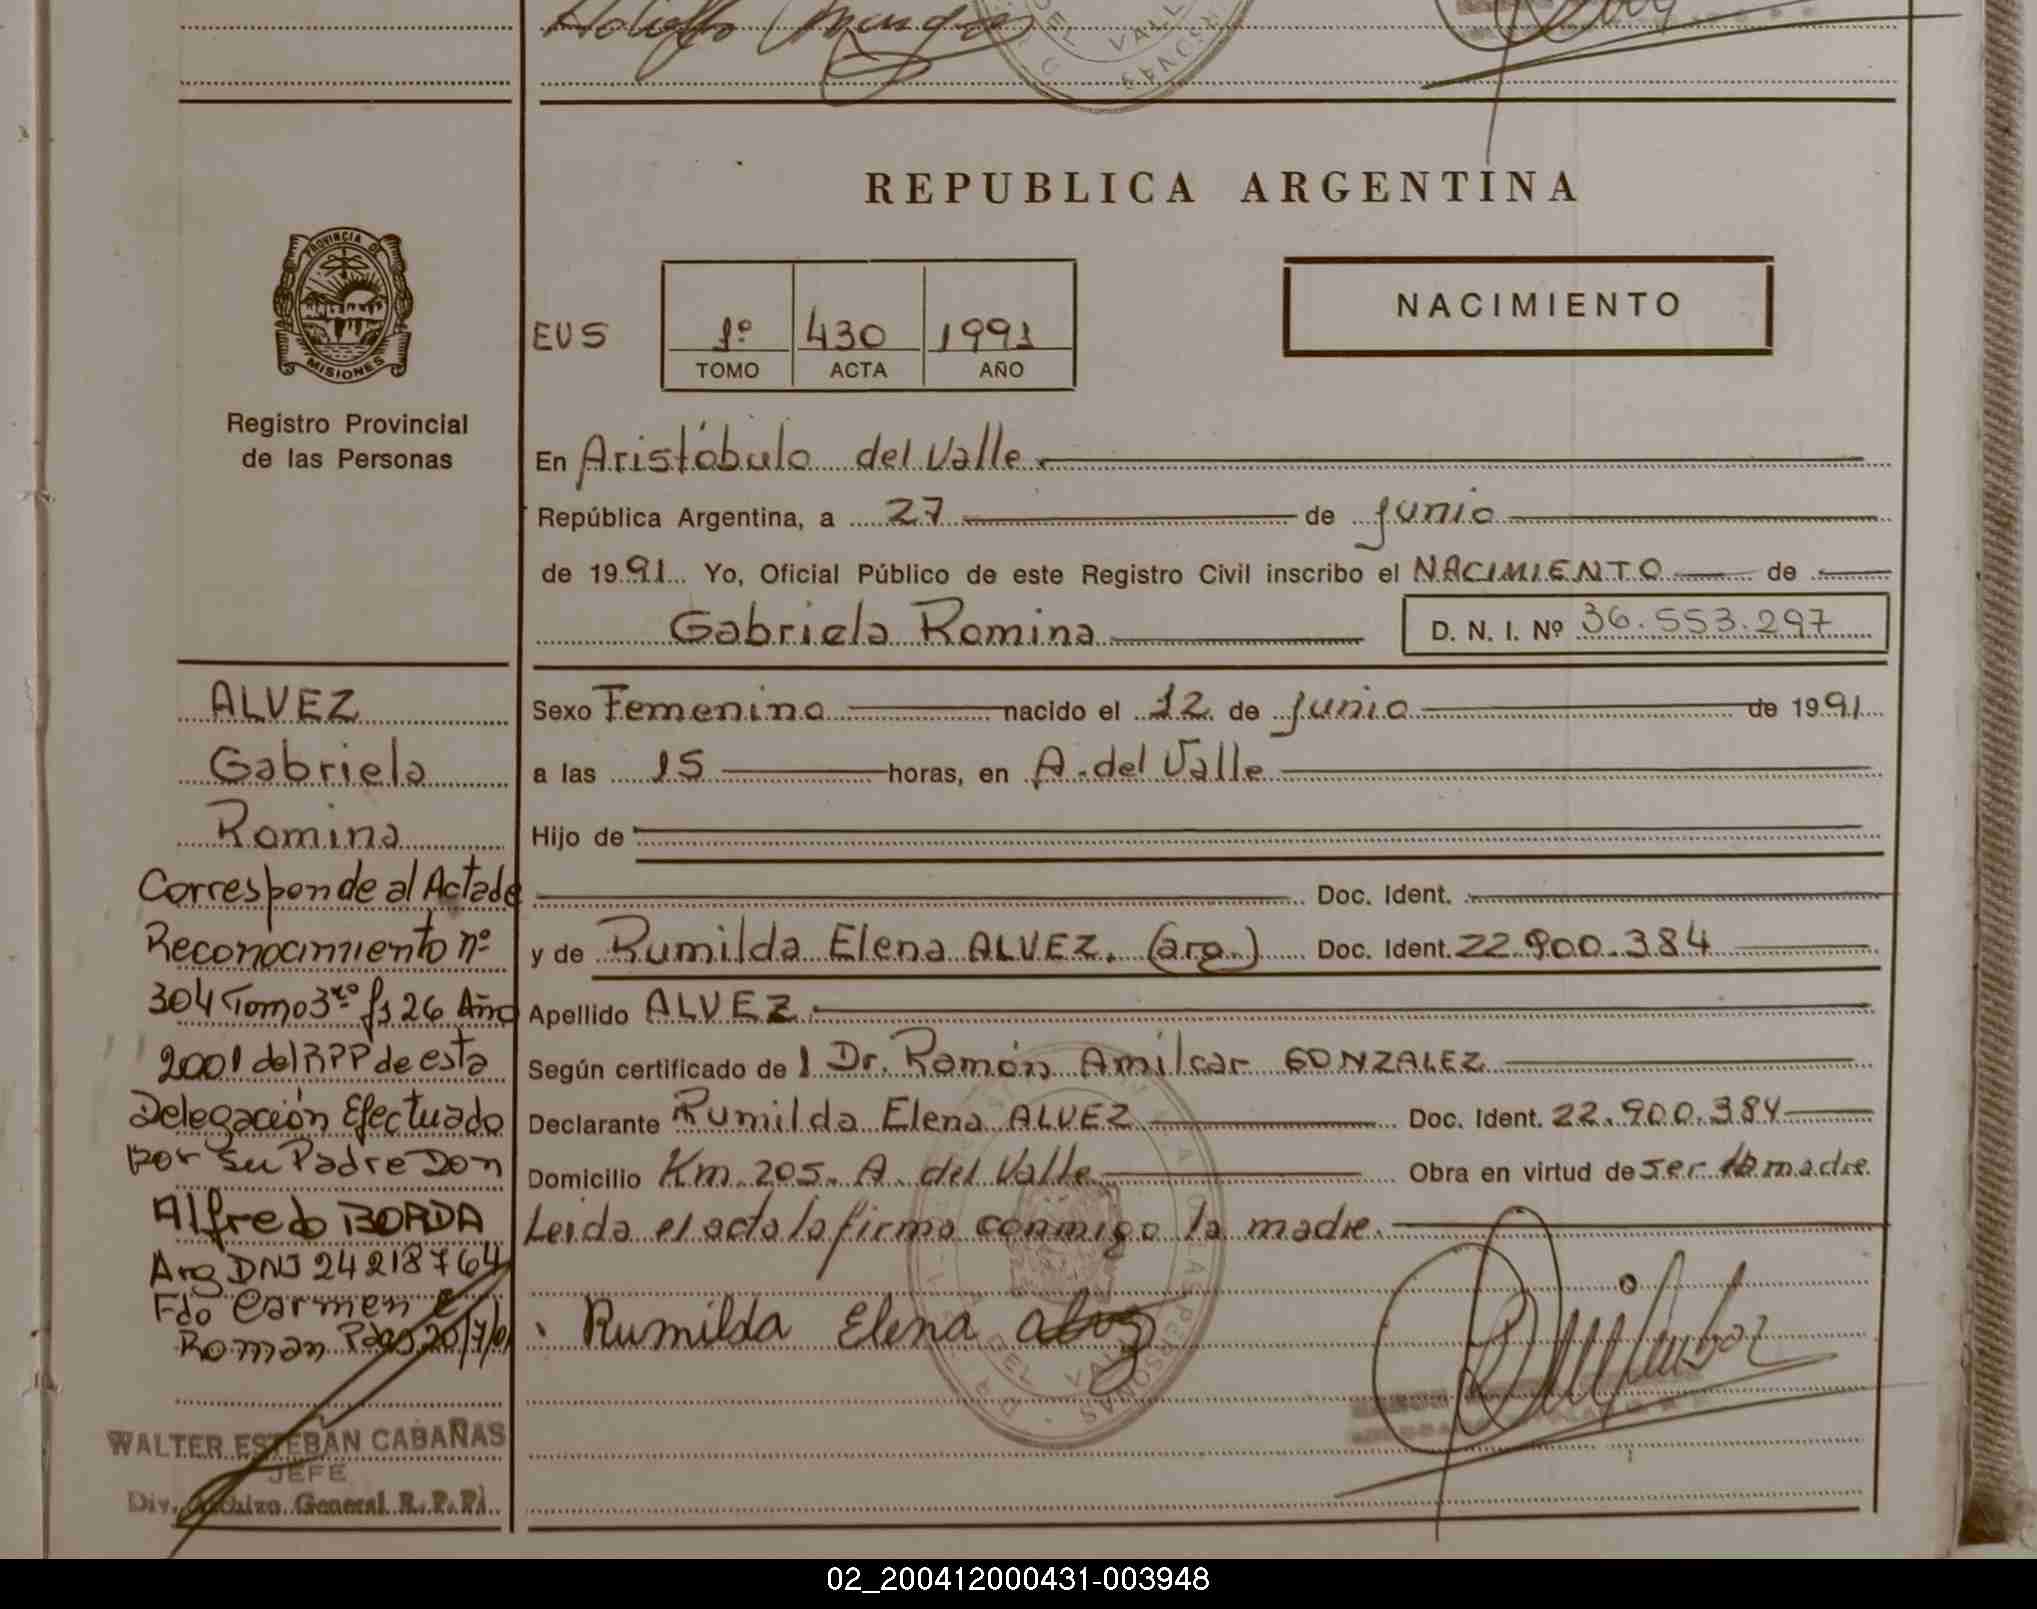 REPUBLICA ARGENTINA
PROVINCIA DE
MISIONES
Registro Provincial
de las Personas
EUS
1º 430 1991
TOMO ACTA AÑO
NACIMIENTO
En Aristóbulo del Valle
República Argentina, a 27 de junio
de 1991 Yo, Oficial Público de este Registro Civil inscribo el NACIMIENTO de
Gabriela Romina
D. N. I. Nº 36.553.297
ALVEZ
Gabriela
Romina
Corresponde al Acta de
Reconocimiento nº
304 Tomo 3ro fs 26 Año
2001 del RPP de esta
Delegación Efectuado
por su Padre Don
Alfredo BORDA
Arg DNI 24218764
Fdo Carmen
Roman 20/7/01
WALTER ESTEBAN CABAÑAS
JEFE
Div. Archivo General R.P.P.
Sexo Femenino nacido el 12 de junio de 1991
a las 15 horas, en A. del Valle
Hijo de
Doc. Ident.
y de Rumilda Elena ALVEZ. (arg.) Doc. Ident. 22.900.384
Apellido ALVEZ
Según certificado de l Dr. Ramón Amilcar GONZALEZ
Declarante Rumilda Elena ALVEZ Doc. Ident. 22.900.384
Domicilio Km. 205. A. del Valle Obra en virtud de ser la madre.
Leida el acta la firma conmigo la madre.
Rumilda Elena Alvez
02_200412000431-003948